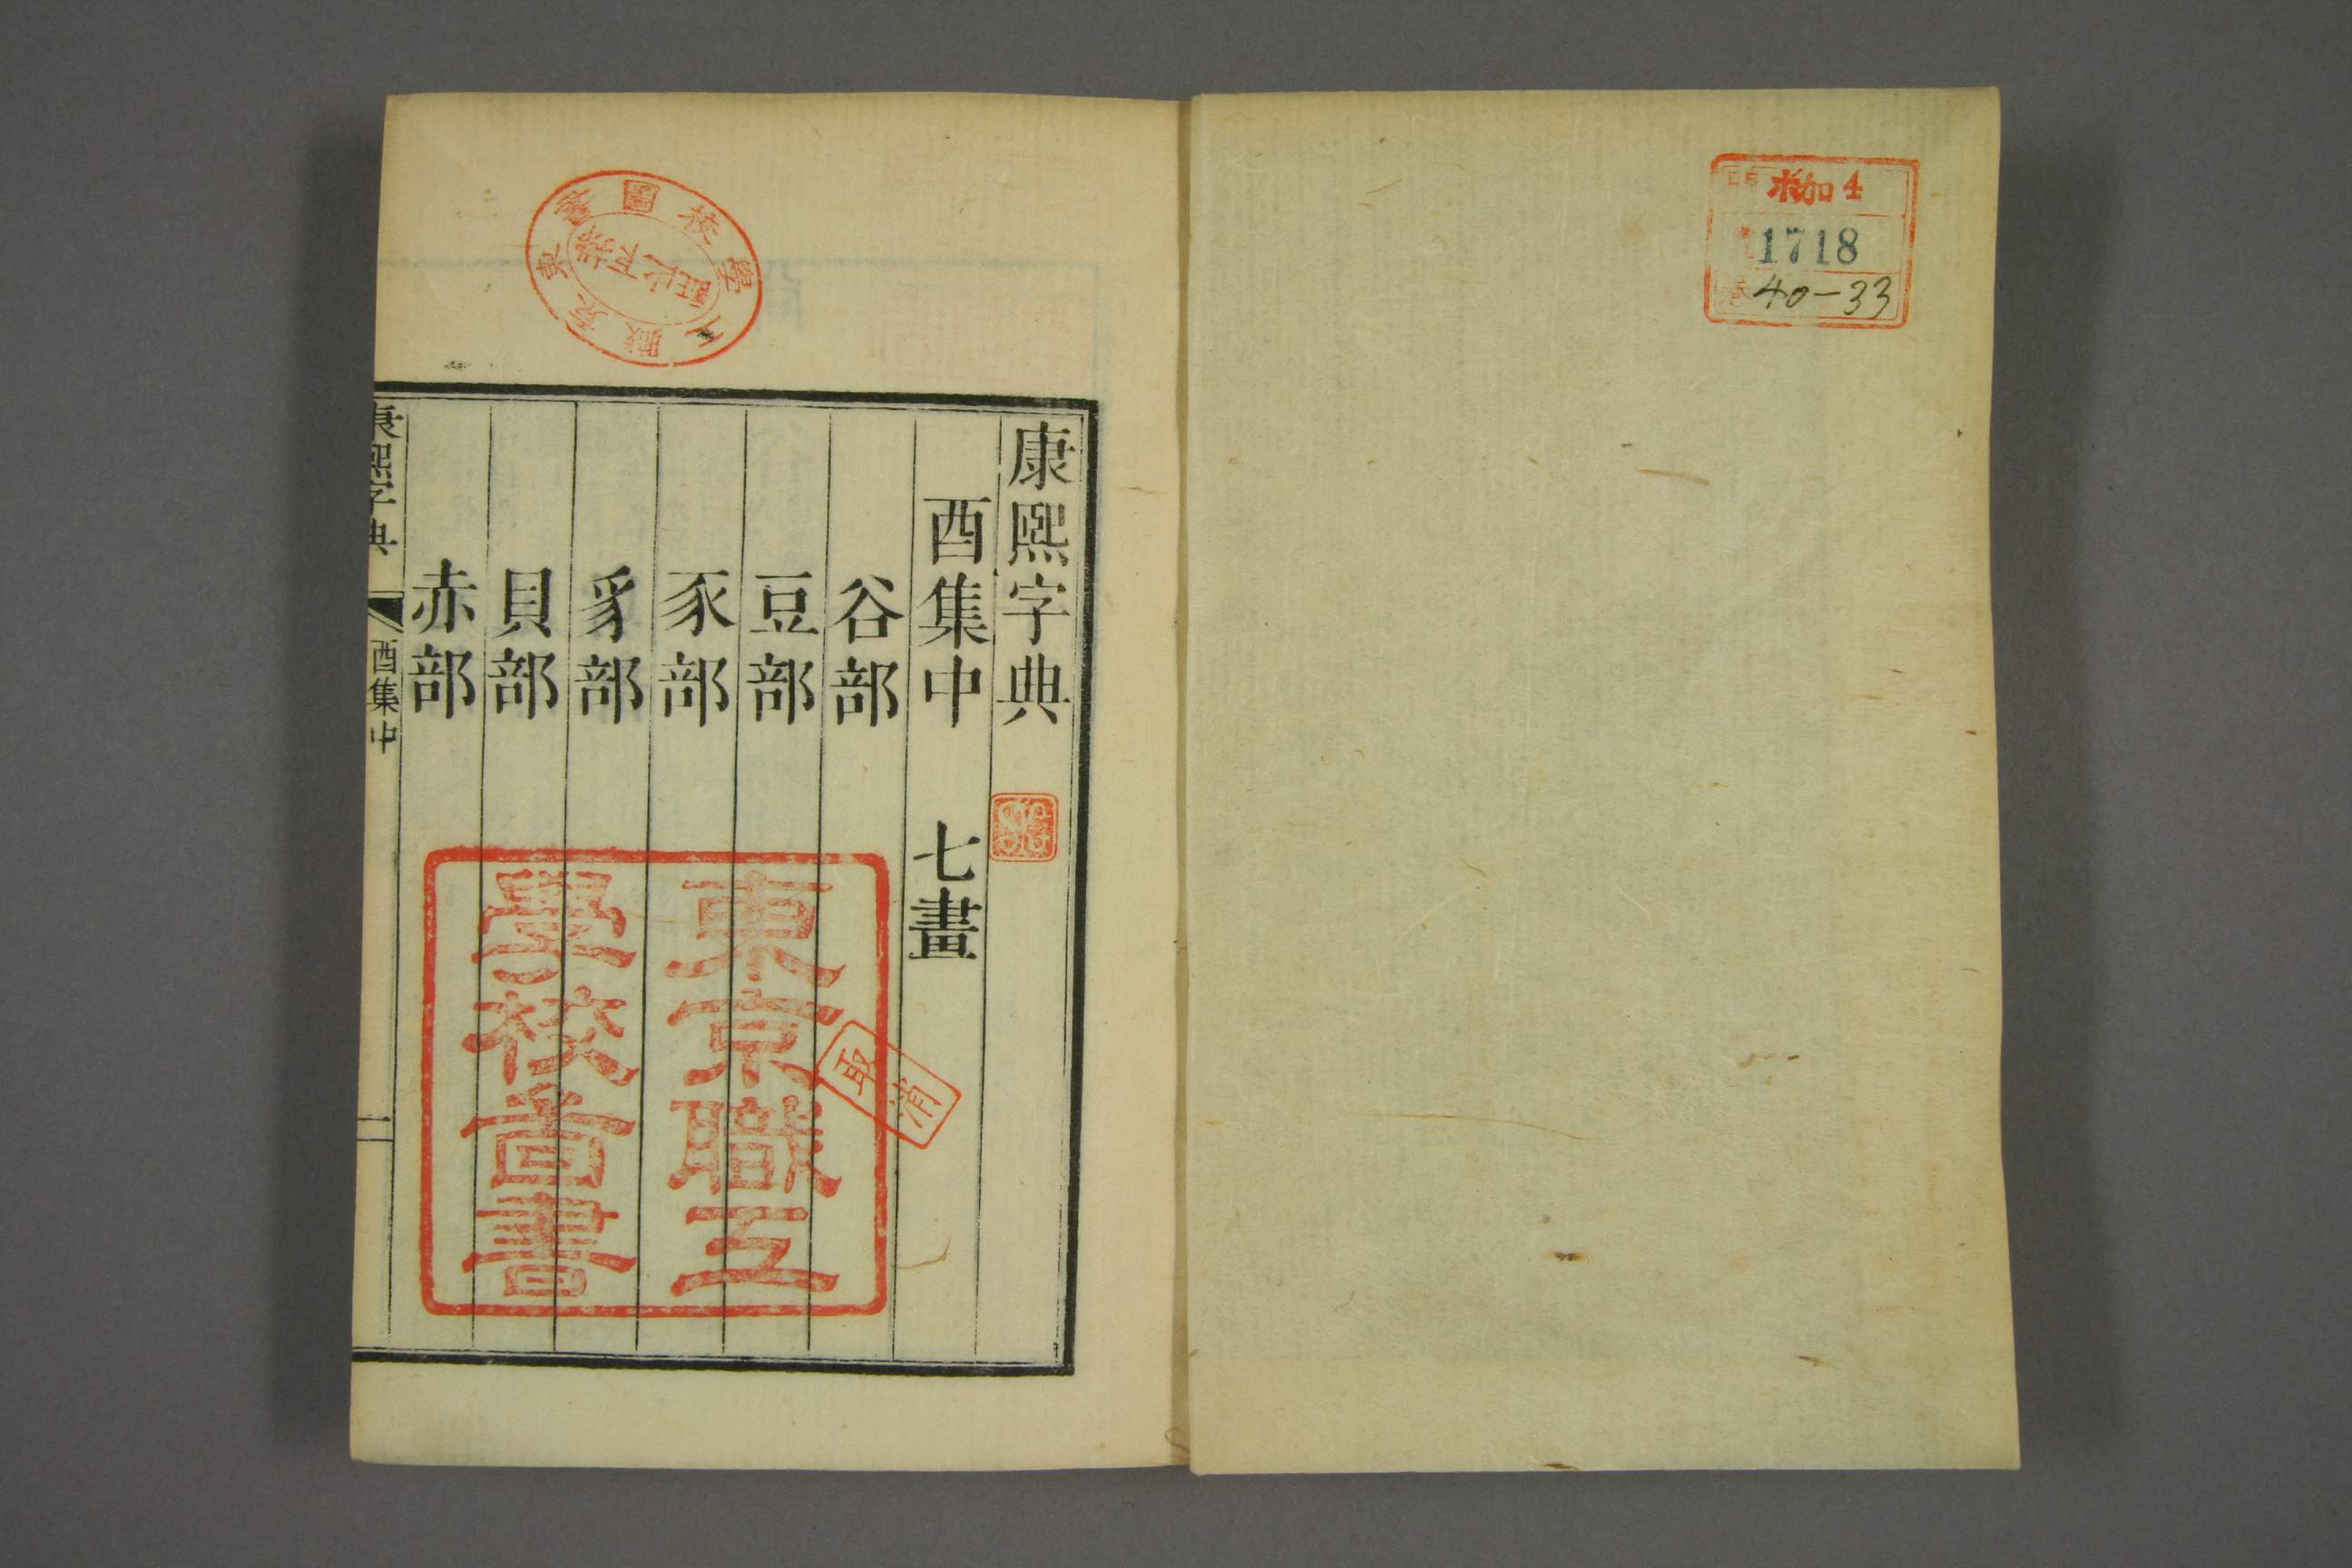 加4
1718
40-33
康熙字典
酉集中 七畫
谷部
豆部
豕部
豸部
貝部
赤部
康熙字典 酉集中 一
東京職工
學校啚書
東京職工學校圖書
取消